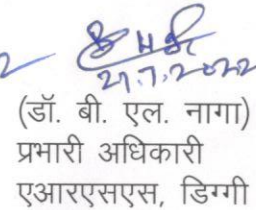 27.7.2022
(डॉ. बी. एल. नागा)
प्रभारी अधिकारी
एआरएसएस, डिग्गी